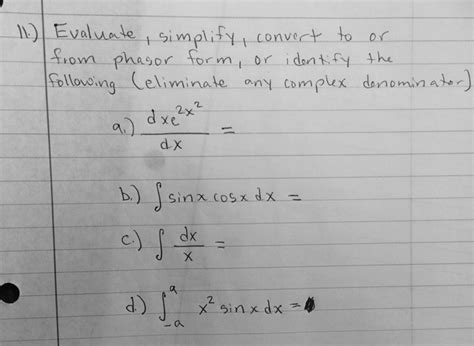 11.) Evaluate, simplify, convert to or
from phasor form, or identify the
following (eliminate any complex denominator)
a.) dxe^{2x^2}/dx =
b.) ∫ sinx cosx dx =
c.) ∫ dx/x =
d.) ∫_{-a}^{a} x^2 sinx dx =